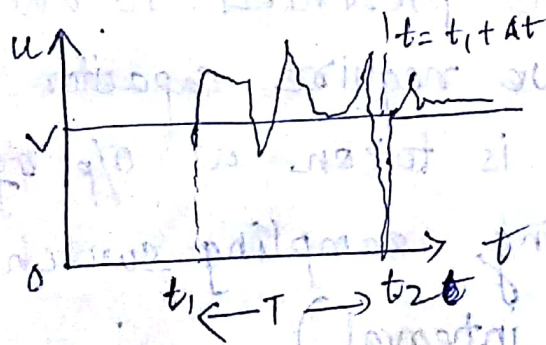 u
t = t₁ + Δt
V
0
t
t₁ ← T → t₂